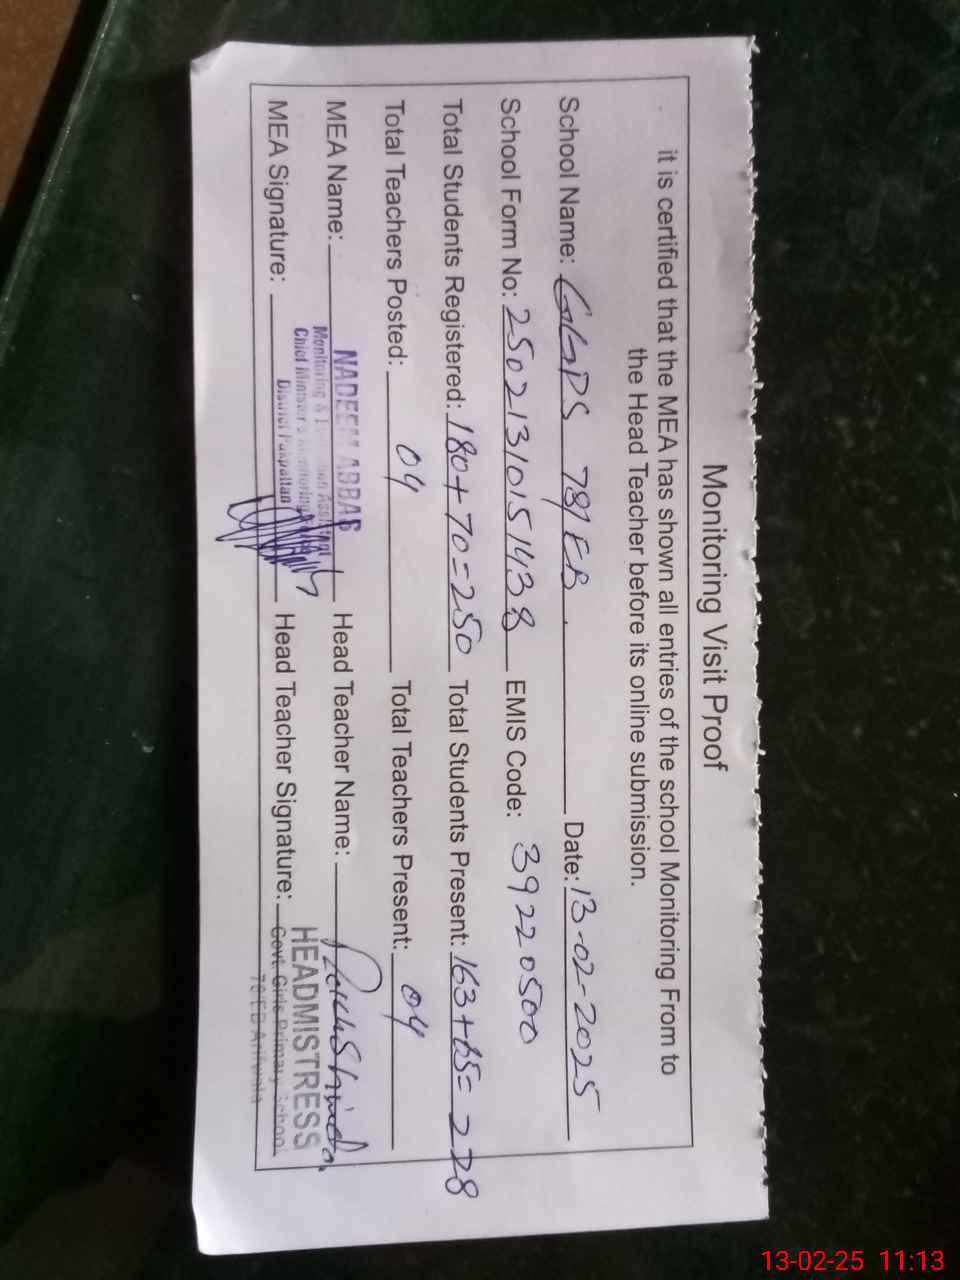 Monitoring Visit Proof
it is certified that the MEA has shown all entries of the school Monitoring From to
the Head Teacher before its online submission.
School Name: GGPS 78/EB. Date: 13-02-2025
School Form No: 25021310151438 EMIS Code: 39220500
Total Students Registered: 180+70=250 Total Students Present: 163+65=228
Total Teachers Posted: 04 Total Teachers Present: 04
MEA Name: NADEEM ABBAS Head Teacher Name:
Monitoring &
Chief Minister's Monitoring
District Pakpattan
MEA Signature: Head Teacher Signature:
HEADMISTRESS
Govt. Girls Primary School
78/EB Arifwala
13-02-25 11:13